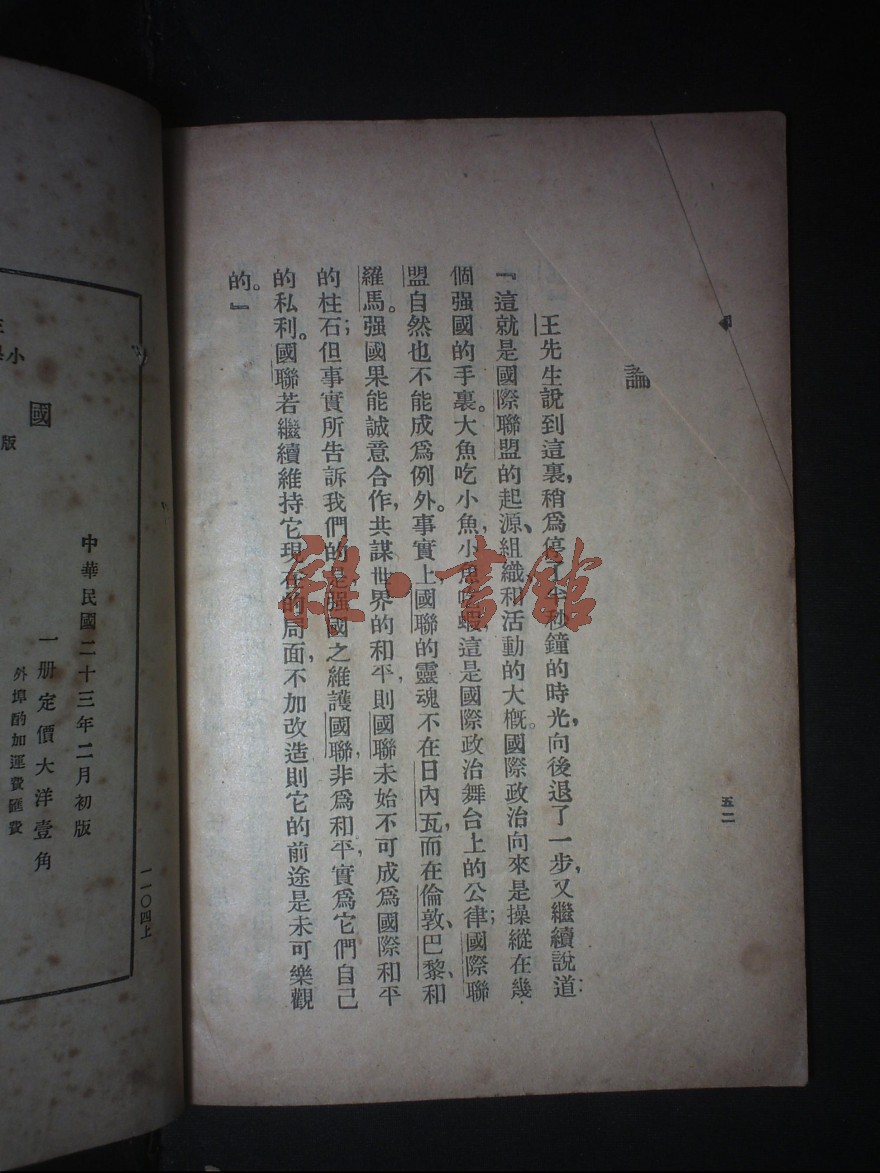 論
王先生說到這裏,稍爲停了半秒鐘的時光,向後退了一步,又繼續說道:
『這就是國際聯盟的起源、組織和活動的大概。國際政治向來是操縱在幾
個强國的手裏。大魚吃小魚,小魚吃蝦,這是國際政治舞台上的公律;國際聯
盟自然也不能成爲例外。事實上國聯的靈魂不在日內瓦,而在倫敦、巴黎、和
羅馬。强國果能誠意合作,共謀世界的和平,則國聯未始不可成爲國際和平
的柱石;但事實所告訴我們的,是强國之維護國聯,非爲和平,實爲它們自己
的私利。國聯若繼續維持它現在的局面,不加改造,則它的前途是未可樂觀
的。』
五二
雜·書館
國
版
中華民國二十三年二月初版
一册定價大洋壹角
外埠酌加運費匯費
一一〇四上